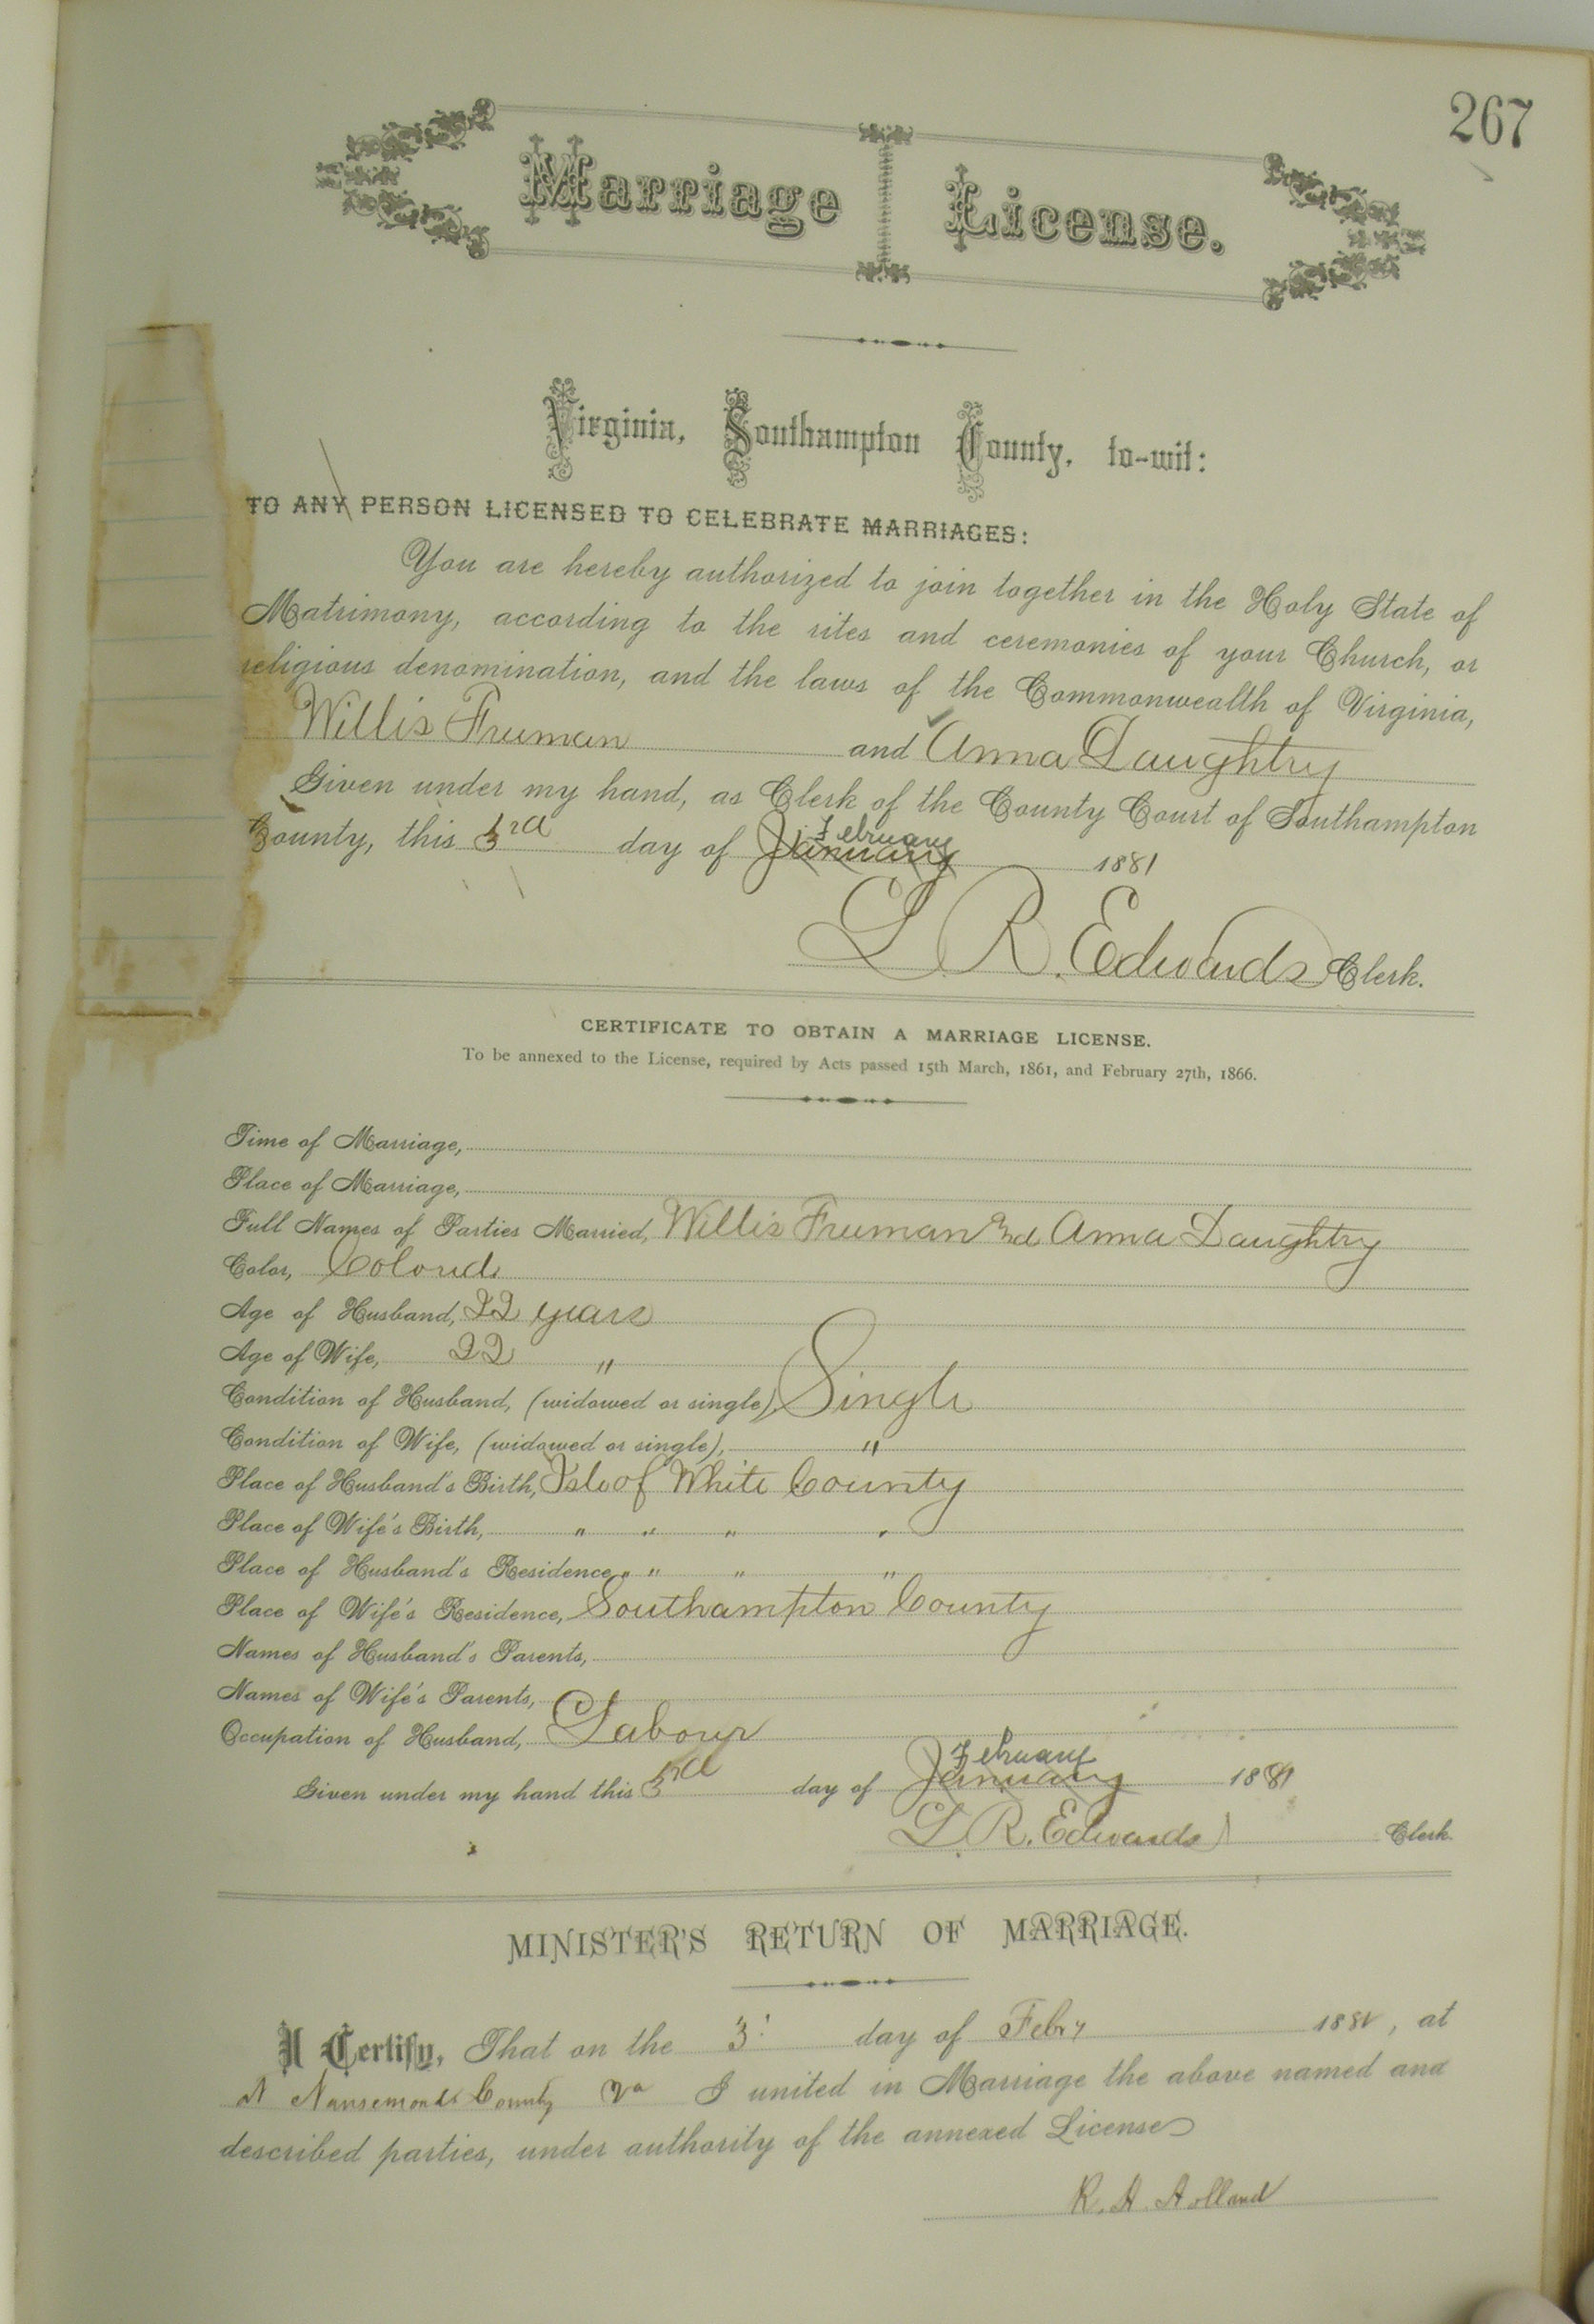 267
Marriage License.
Virginia, Southampton County, to-wit:
TO ANY PERSON LICENSED TO CELEBRATE MARRIAGES:
You are hereby authorized to join together in the Holy State of
Matrimony, according to the rites and ceremonies of your Church, or
religious denomination, and the laws of the Commonwealth of Virginia,
Willis Freeman and Anna Daughtry
Given under my hand, as Clerk of the County Court of Southampton
County, this 3rd day of January February 1881
L. R. Edwards Clerk.
CERTIFICATE TO OBTAIN A MARRIAGE LICENSE.
To be annexed to the License, required by Acts passed 15th March, 1861, and February 27th, 1866.
Time of Marriage,
Place of Marriage,
Full Names of Parties Married, Willis Freeman and Anna Daughtry
Color, Colored
Age of Husband, 22 years
Age of Wife, 22 "
Condition of Husband, (widowed or single) Single
Condition of Wife, (widowed or single), "
Place of Husband's Birth, Isle of White County
Place of Wife's Birth, " " " "
Place of Husband's Residence, " " " "
Place of Wife's Residence, Southampton County
Names of Husband's Parents,
Names of Wife's Parents,
Occupation of Husband, Labour
Given under my hand this 3rd day of January February 1881
L. R. Edwards Clerk.
MINISTER'S RETURN OF MARRIAGE.
I Certify, That on the 3' day of Febry 1881, at
Nansemond County Va I united in Marriage the above named and
described parties, under authority of the annexed License
R. H. Holland